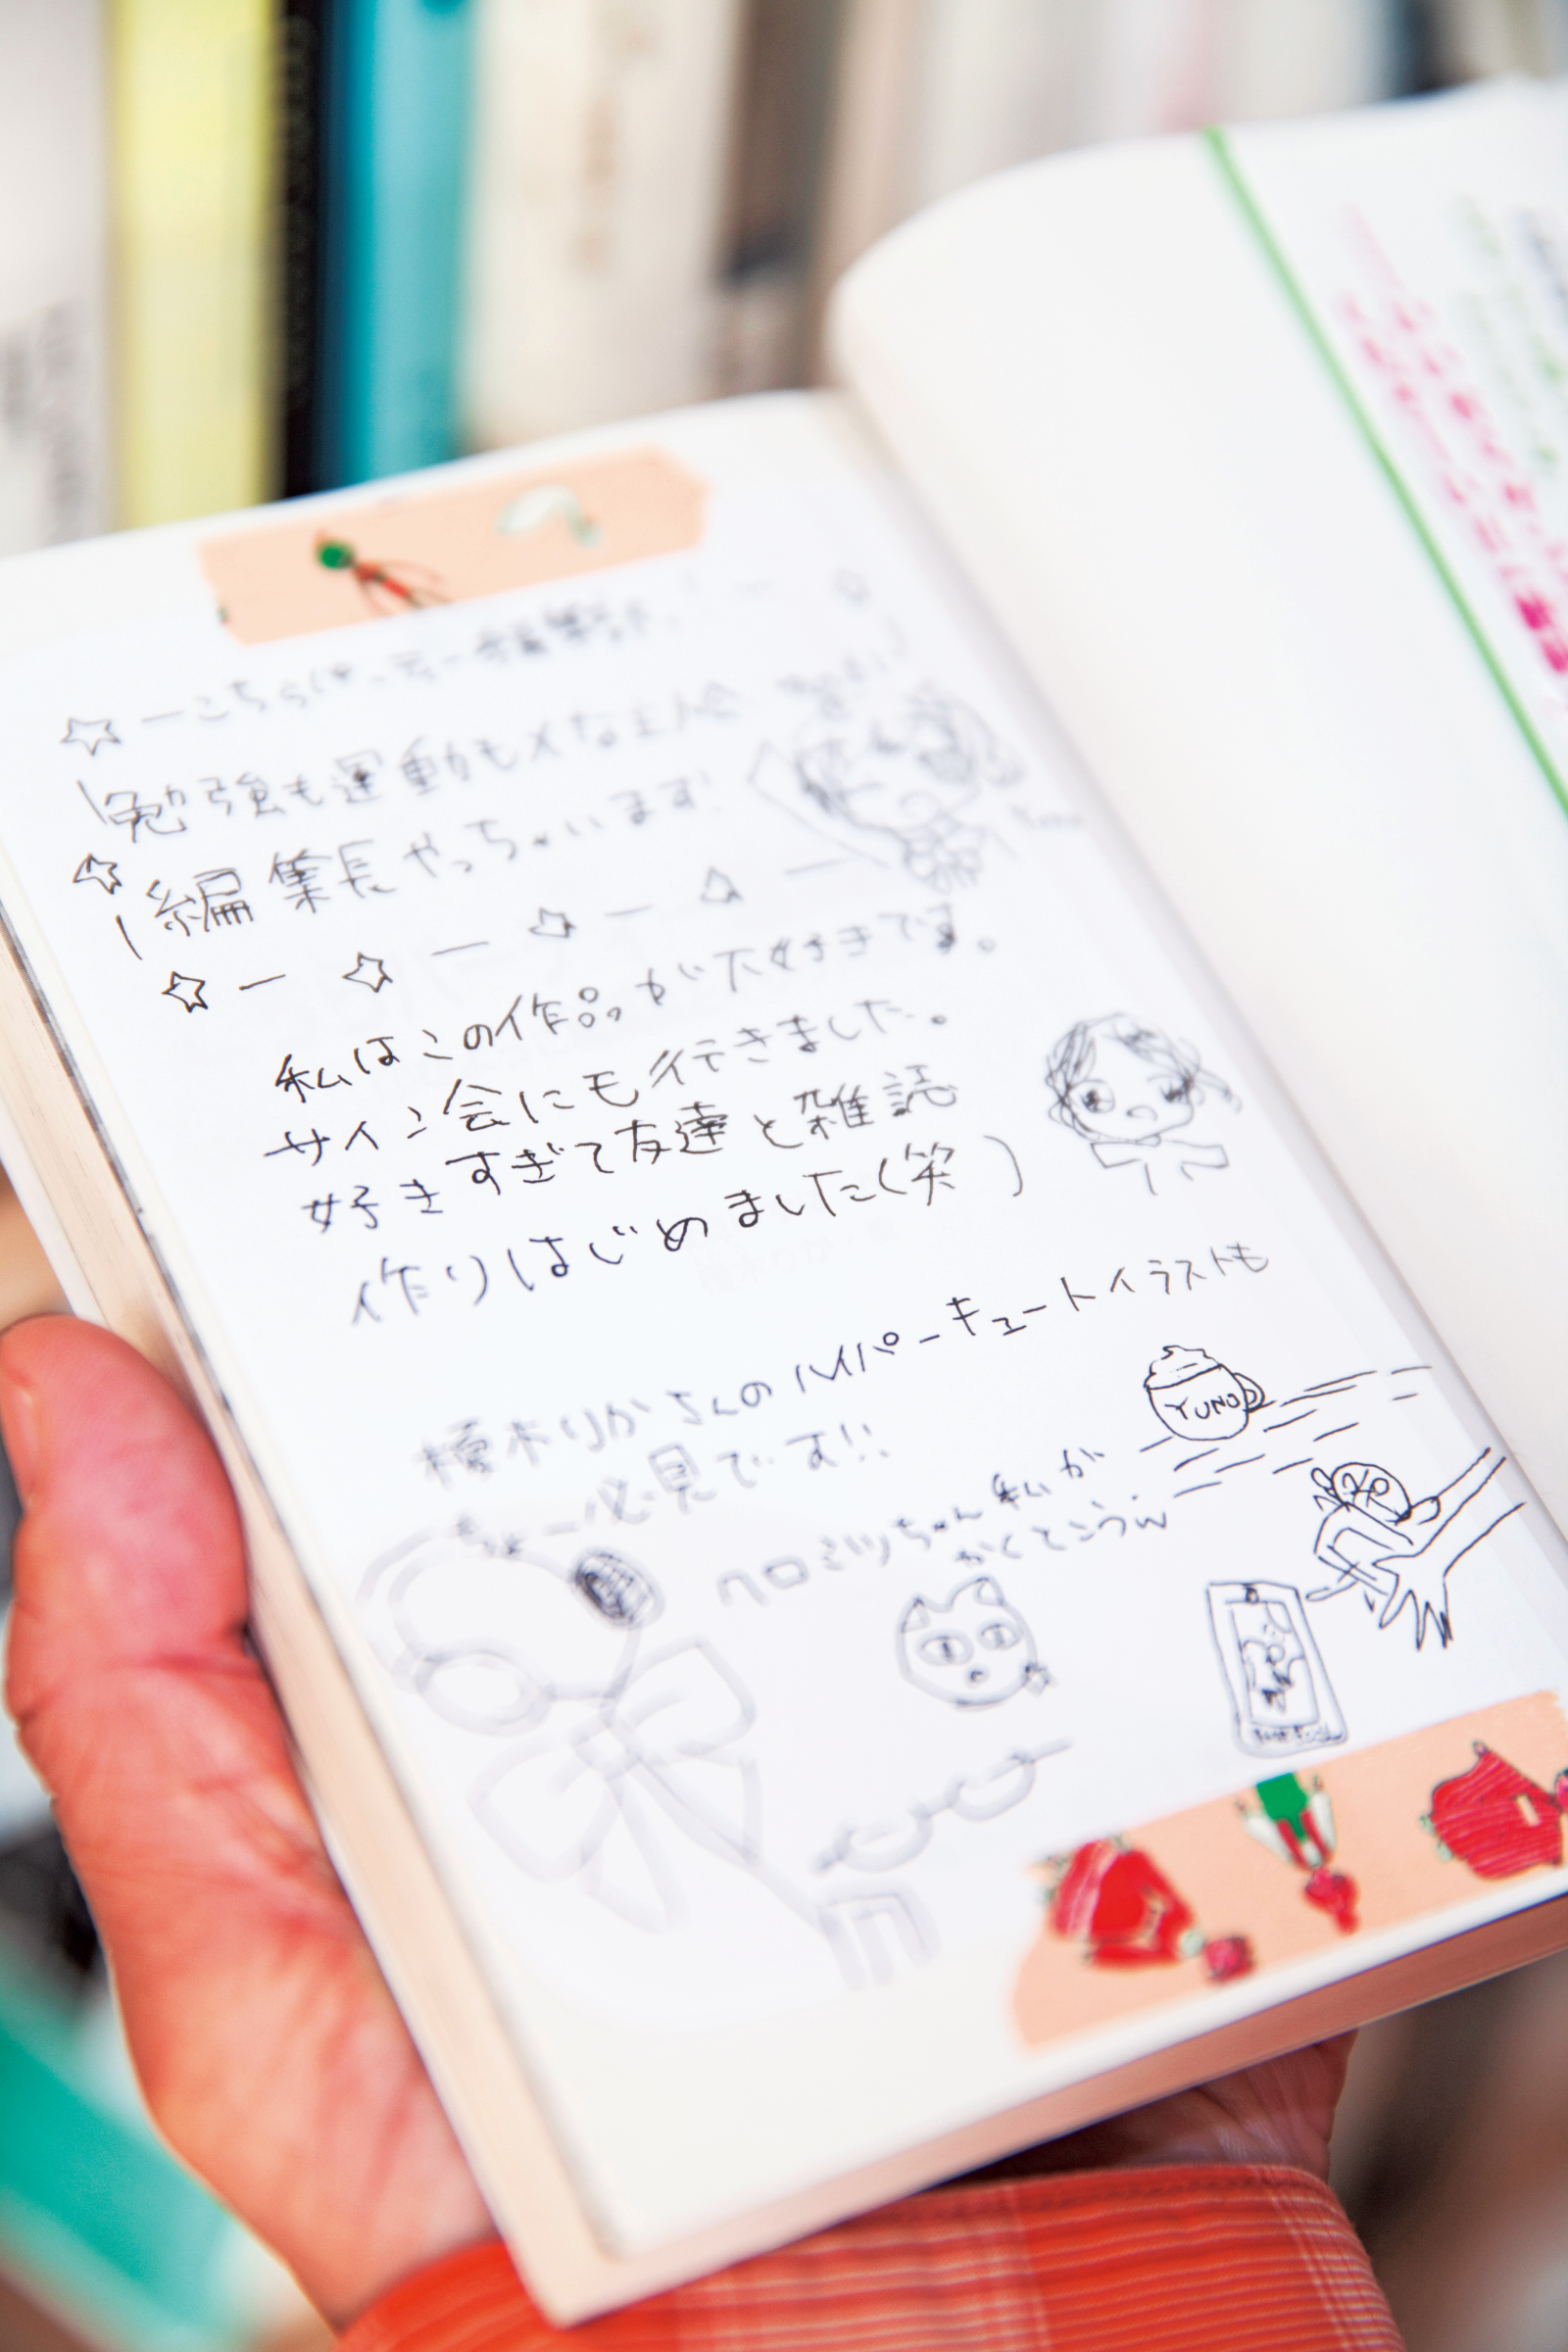 こちらはティー編集部!
勉強も運動もメな主人公
編集長やっちゃいます!
私はこの作品が大好きです。
サイン会にも行きました。
好きすぎて友達と雑誌
作りはじめました(笑)
榎木りかさんのハイパーキュートイラストも
ちょー必見です!!
ハロミツちゃん私が
かくとこうw
YUNO